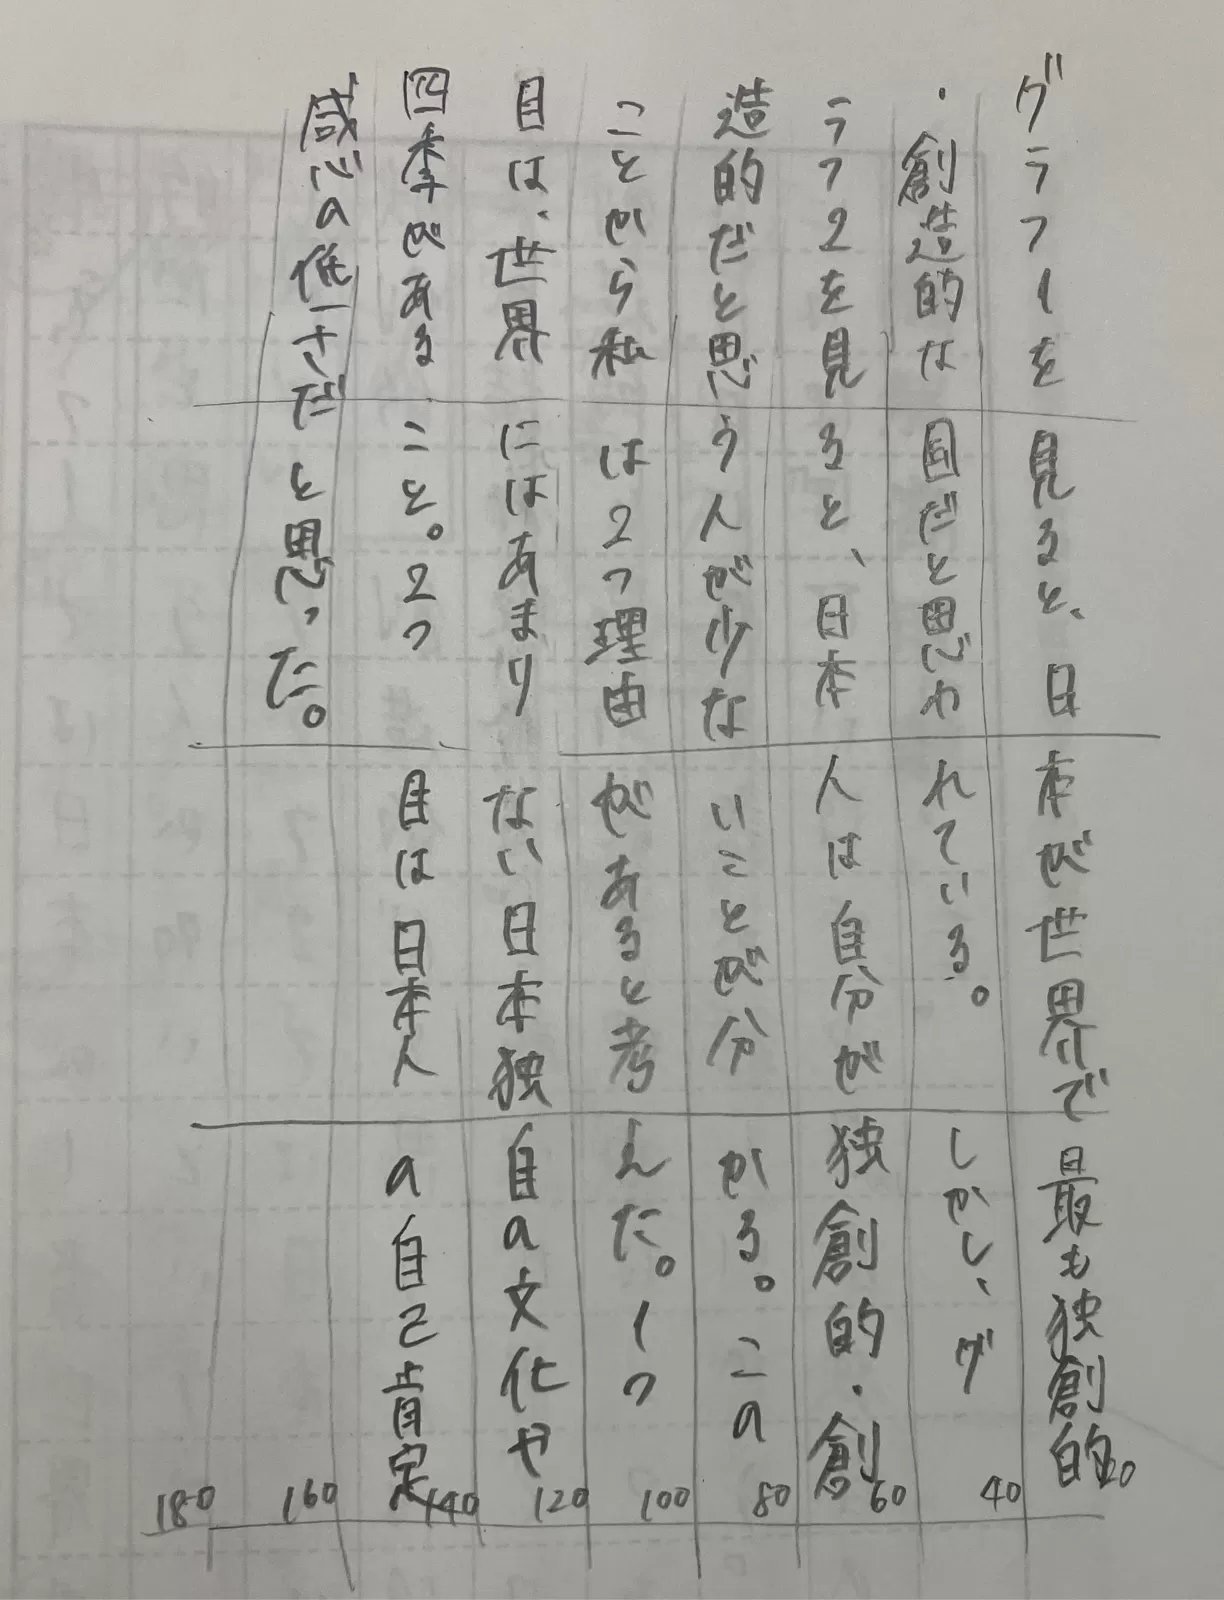 グラフ1を見ると、日本が世界で最も独創的
・創造的な国だと思われている。しかし、グ
ラフ2を見ると、日本人は自分が独創的・創
造的だと思う人が少ないことが分かる。この
ことから私は2つ理由があると考えんだ。1つ
目は、世界にはあまりない日本独自の文化や
四季があること。2つ目は日本人の自己肯定
感心の低さだと思った。
20
40
60
80
100
120
140
160
180